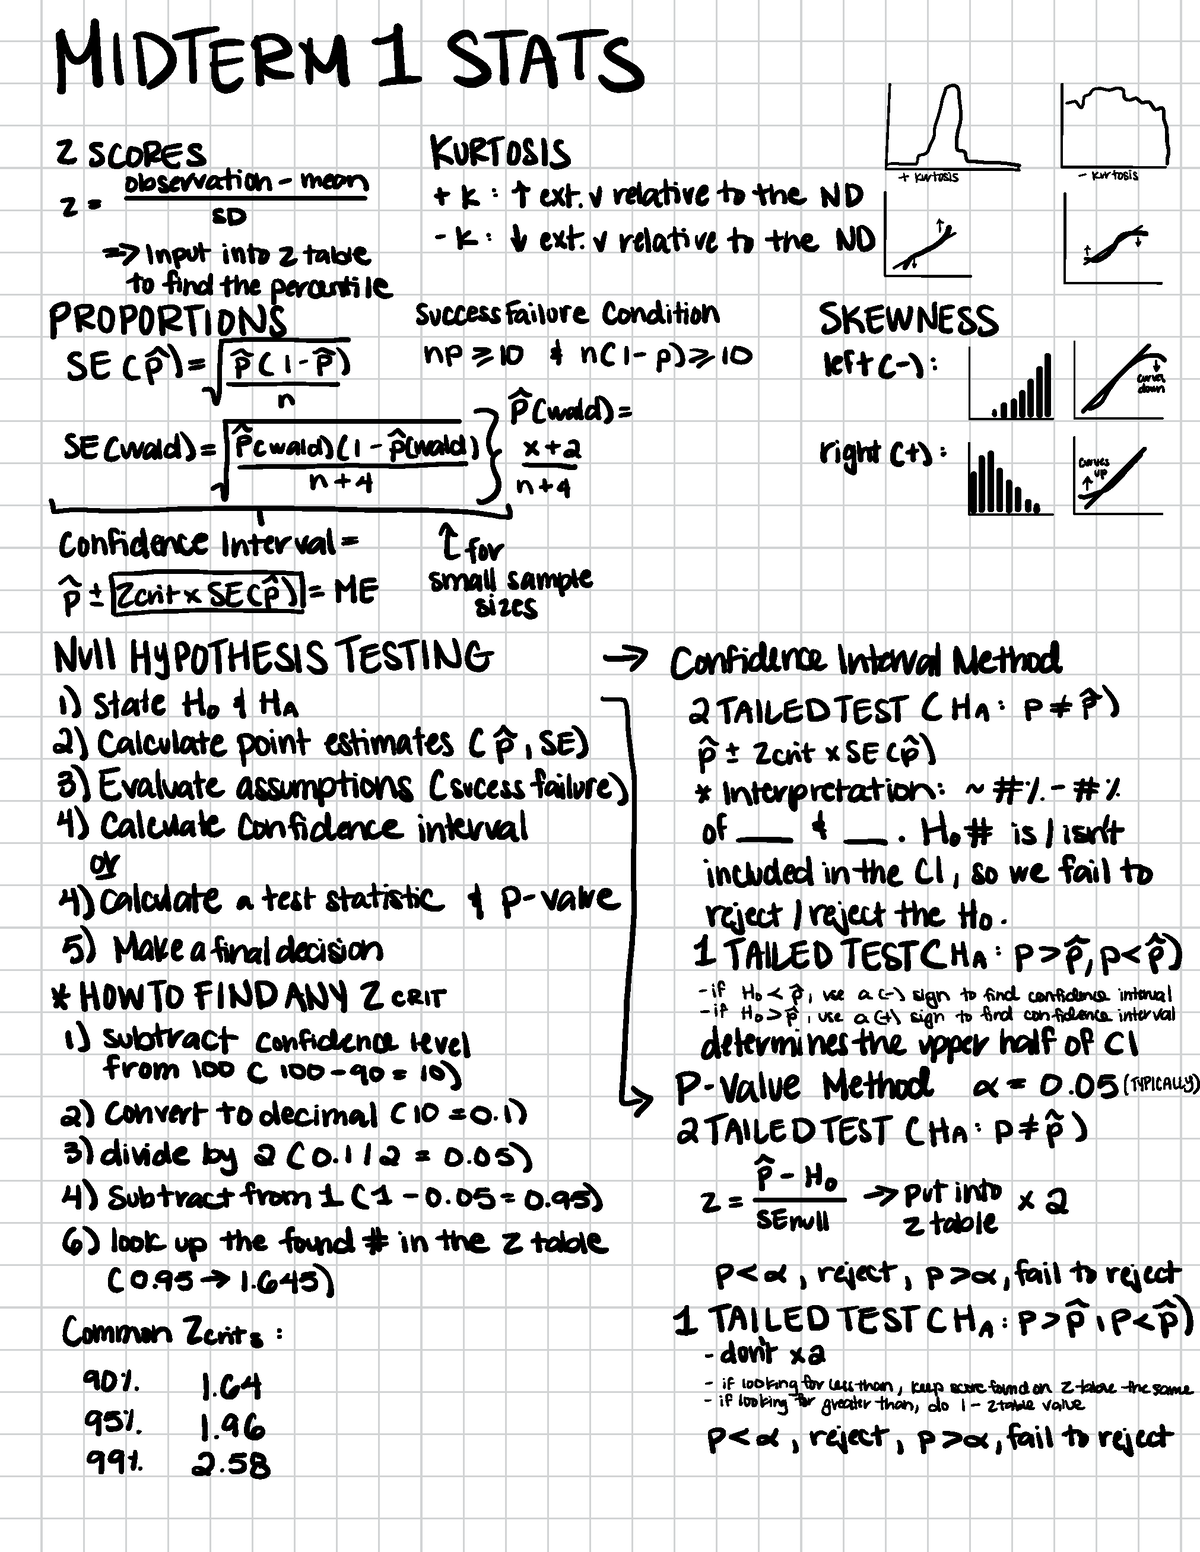 MIDTERM 1 STATS
Z SCORES
z = observation - mean / SD
=> Input into z table
to find the percentile
KURTOSIS
+ K : ↑ ext. v relative to the ND
- K : ↓ ext. v relative to the ND
+ kurtosis
- kurtosis
PROPORTIONS
SE (p̂) = √ p̂ (1 - p̂) / n
SE (wald) = √ p̂(wald) (1 - p̂(wald) / n + 4 } p̂ (wald) = x + 2 / n + 4
Success Failure Condition
np ≥ 10 & n(1 - p) ≥ 10
↑ for
small sample
sizes
Confidence Interval =
p̂ ± Zcrit x SE(p̂) = ME
SKEWNESS
left (-) :
curves
down
right (+) :
curves
up
Null HYPOTHESIS TESTING
1) State H₀ & HA
2) Calculate point estimates ( p̂ , SE)
3) Evaluate assumptions (sucess failure)
4) Calculate Confidence interval
or
4) Calculate a test statistic & P-value
5) Make a final decision
* HOW TO FIND ANY Z CRIT
1) subtract confidence level
from 100 ( 100 - 90 = 10)
2) Convert to decimal (10 = 0.1)
3) divide by 2 (0.1 / 2 = 0.05)
4) Subtract from 1 (1 - 0.05 = 0.95)
6) look up the found # in the z table
(0.95 → 1.645)
Common Zcrits :
90% 1.64
95% 1.96
99% 2.58
→ Confidence Interval Method
2 TAILED TEST ( HA : P ≠ p̂ )
p̂ ± Zcrit x SE (p̂)
* Interpretation: ~ #% - #%
of ___ & ___ . H₀ # is / isn't
included in the CI, so we fail to
reject / reject the H₀.
1 TAILED TEST ( HA : P > p̂, p < p̂ )
- if H₀ < p̂, use a (-) sign to find confidence interval
- if H₀ > p̂, use a (+) sign to find confidence interval
determines the upper half of CI
P-Value Method α = 0.05 (TYPICALLY)
2 TAILED TEST ( HA : P ≠ p̂ )
z = p̂ - H₀ / SEnull → put into z table x 2
p < α , reject , p > α, fail to reject
1 TAILED TEST ( HA : P > p̂ , P < p̂ )
- don't x2
- if looking for less than, keep score found on z table the same
- if looking for greater than, do 1 - z table value
p < α , reject , p > α, fail to reject